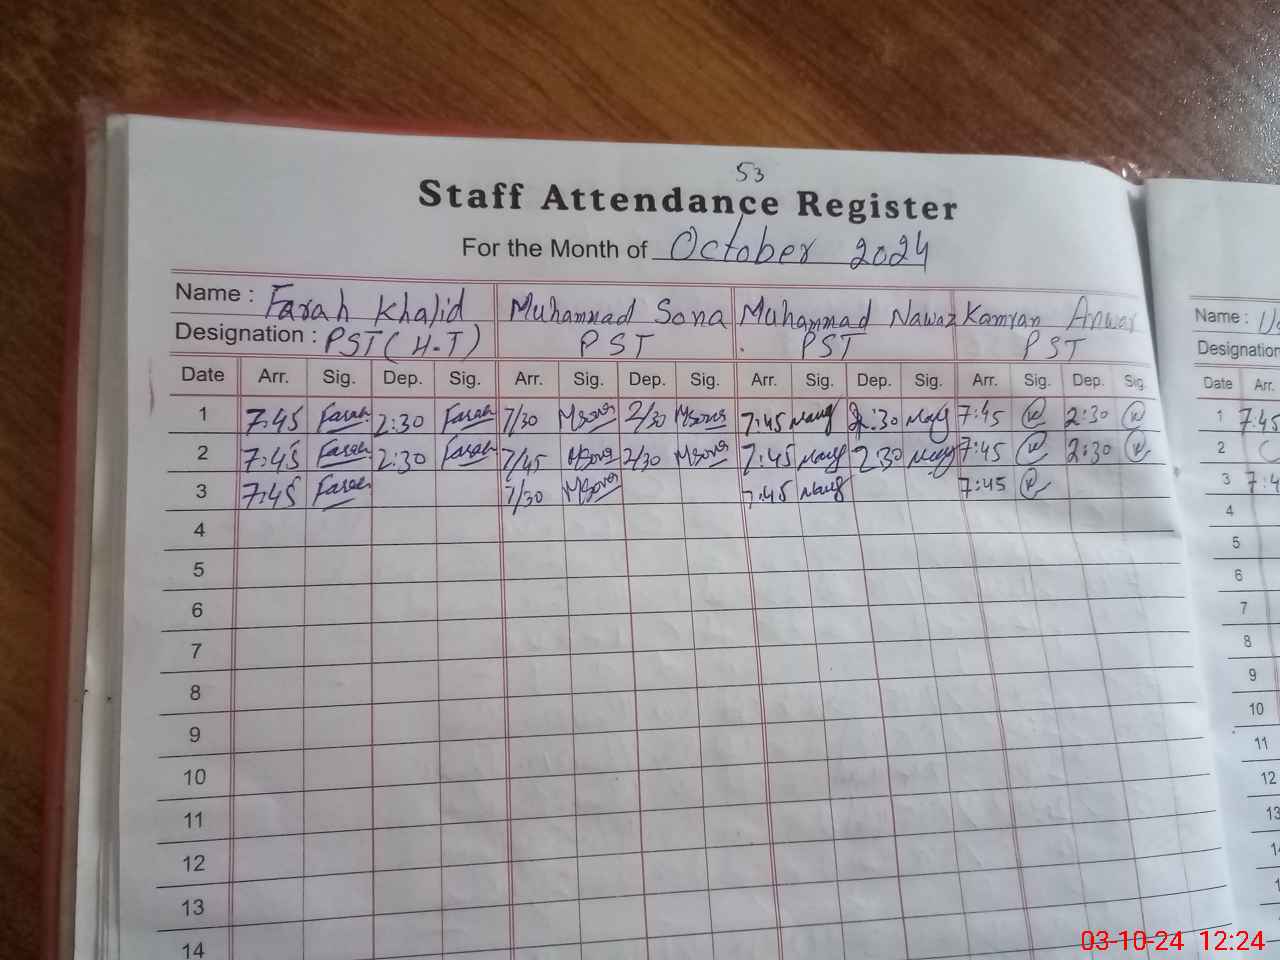 53
Staff Attendance Register
For the Month of October 2024
Name : Farah Khalid Muhammad Sona Muhammad Nawaz Kamran Anwar Name :
Designation : PST (H-T) PST PST PST Designation
Date Arr. Sig. Dep. Sig. Arr. Sig. Dep. Sig. Arr. Sig. Dep. Sig. Arr. Sig. Dep. Sig. Date Arr.
1 7:45 Farah 2:30 Farah 7/30 MSona 2/30 MSona 7:45 2:30 7:45 2:30 1 7:45
2 7:45 Farah 2:30 Farah 7/45 MSona 2/30 MSona 7:45 2:30 7:45 2:30 2
3 7:45 Farah 7/30 MSona 7:45 7:45 3
4 4
5 5
6 6
7 7
8 8
9 9
10 10
11 11
12 12
13 13
14
03-10-24 12:24